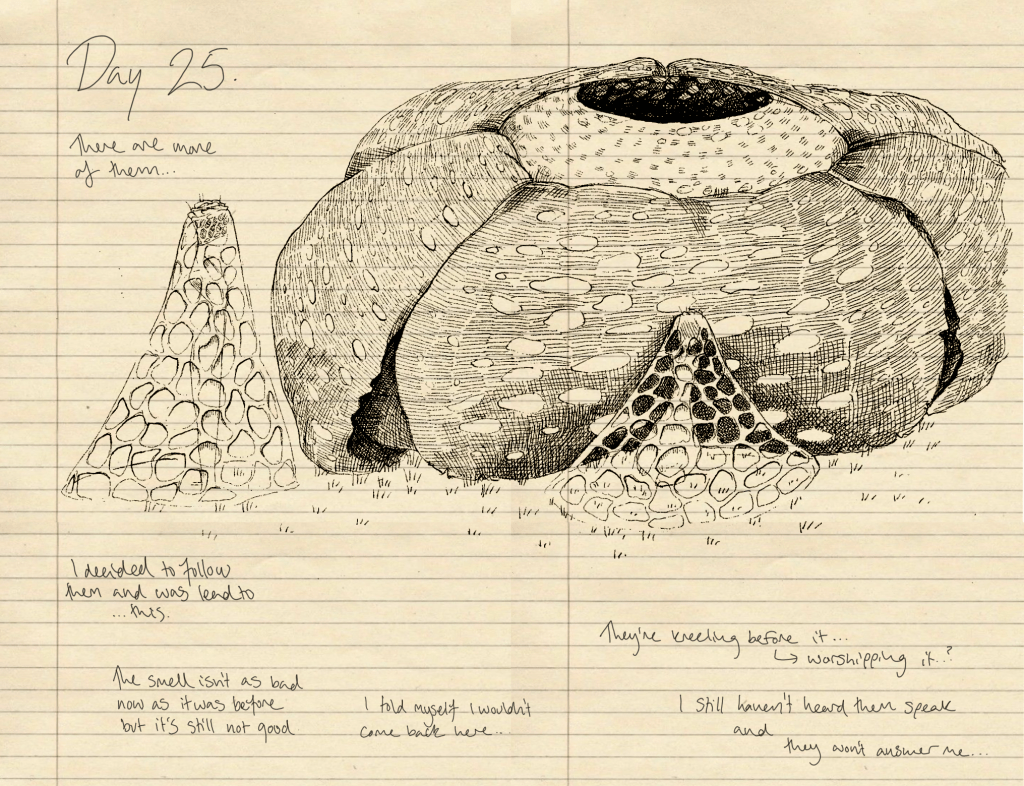 Day 25.
There are more
of them...
I decided to follow
them and was lead to
...this.
The smell isn't as bad
now as it was before
but it's still not good
I told myself I wouldn't
come back here...
They're kneeling before it...
↳ worshipping it...?
I still haven't heard them speak
and
they won't answer me...